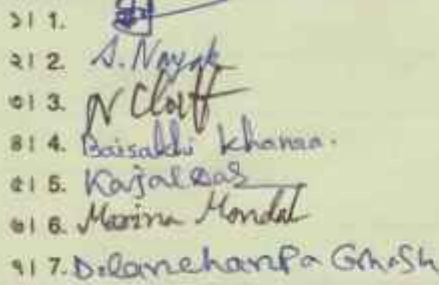 ১। 1.
২। 2. S. Nayak
৩। 3. N
৪। 4. Baisakhi Khanra.
৫। 5. Kajal Das
৬। 6. Marina Mondal
৭। 7. Dolanchanpa Ghosh